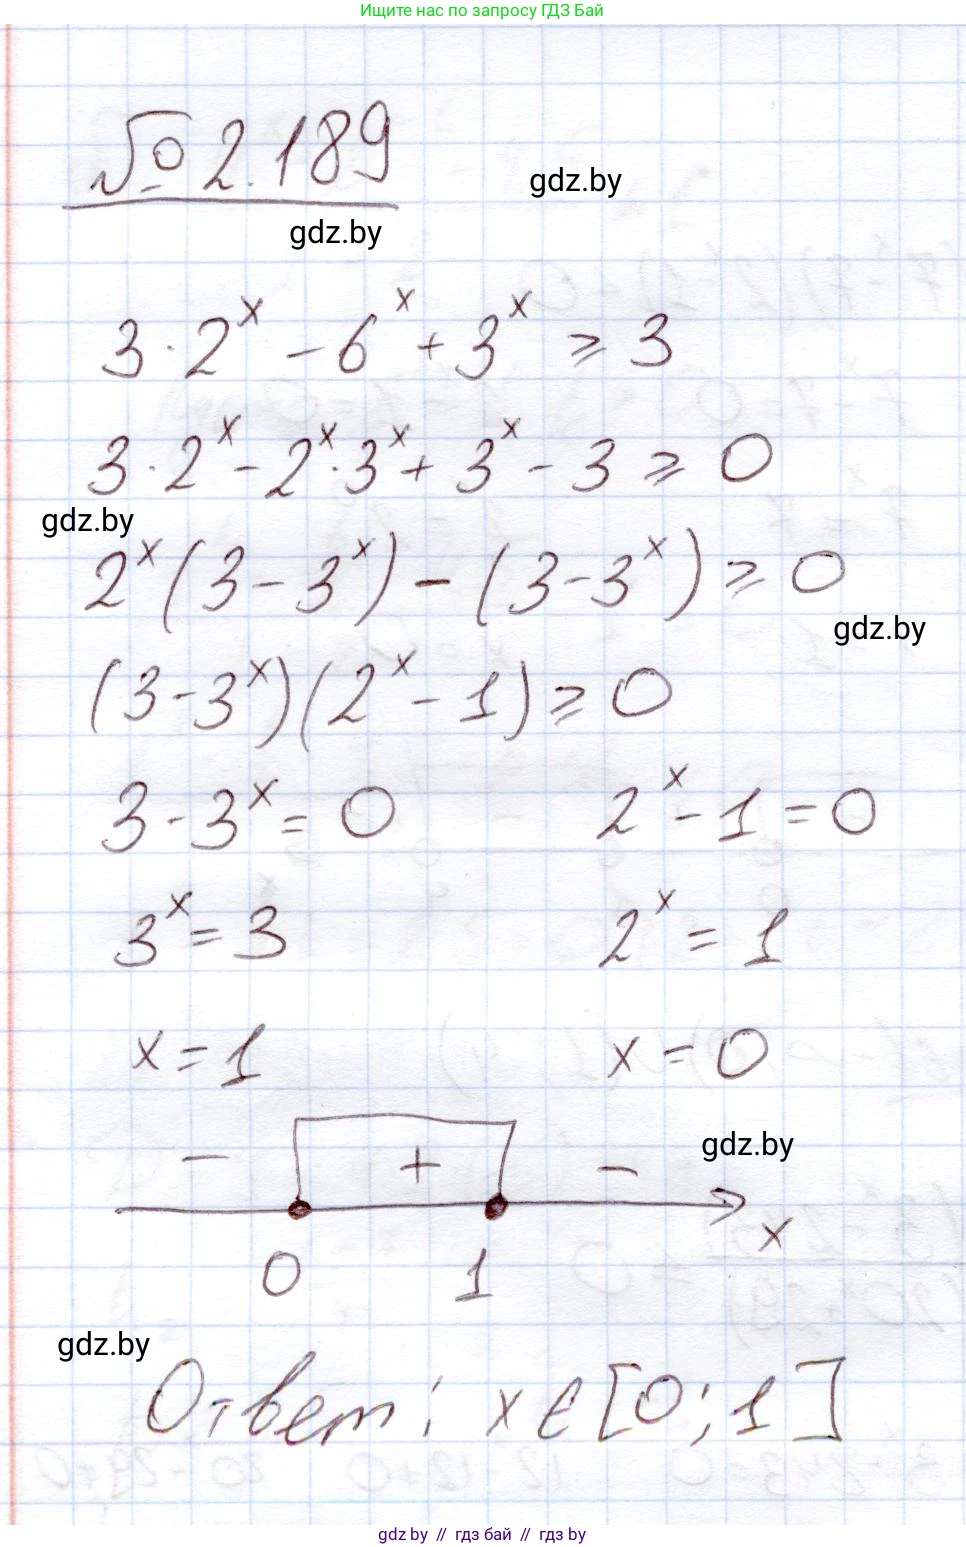 Ищите нас по запросу ГДЗ Бай
№ 2.189
gdz.by
gdz.by
3·2^x - 6^x + 3^x ⩾ 3
3·2^x - 2^x·3^x + 3^x - 3 ⩾ 0
gdz.by
2^x(3-3^x) - (3-3^x) ⩾ 0
gdz.by
(3-3^x)(2^x-1) ⩾ 0
3-3^x = 0 2^x-1 = 0
3^x = 3 2^x = 1
x = 1 x = 0
gdz.by
- + -
x
0 1
gdz.by
Ответ: x ∈ [0; 1]
gdz by // гдз бай // гдз by